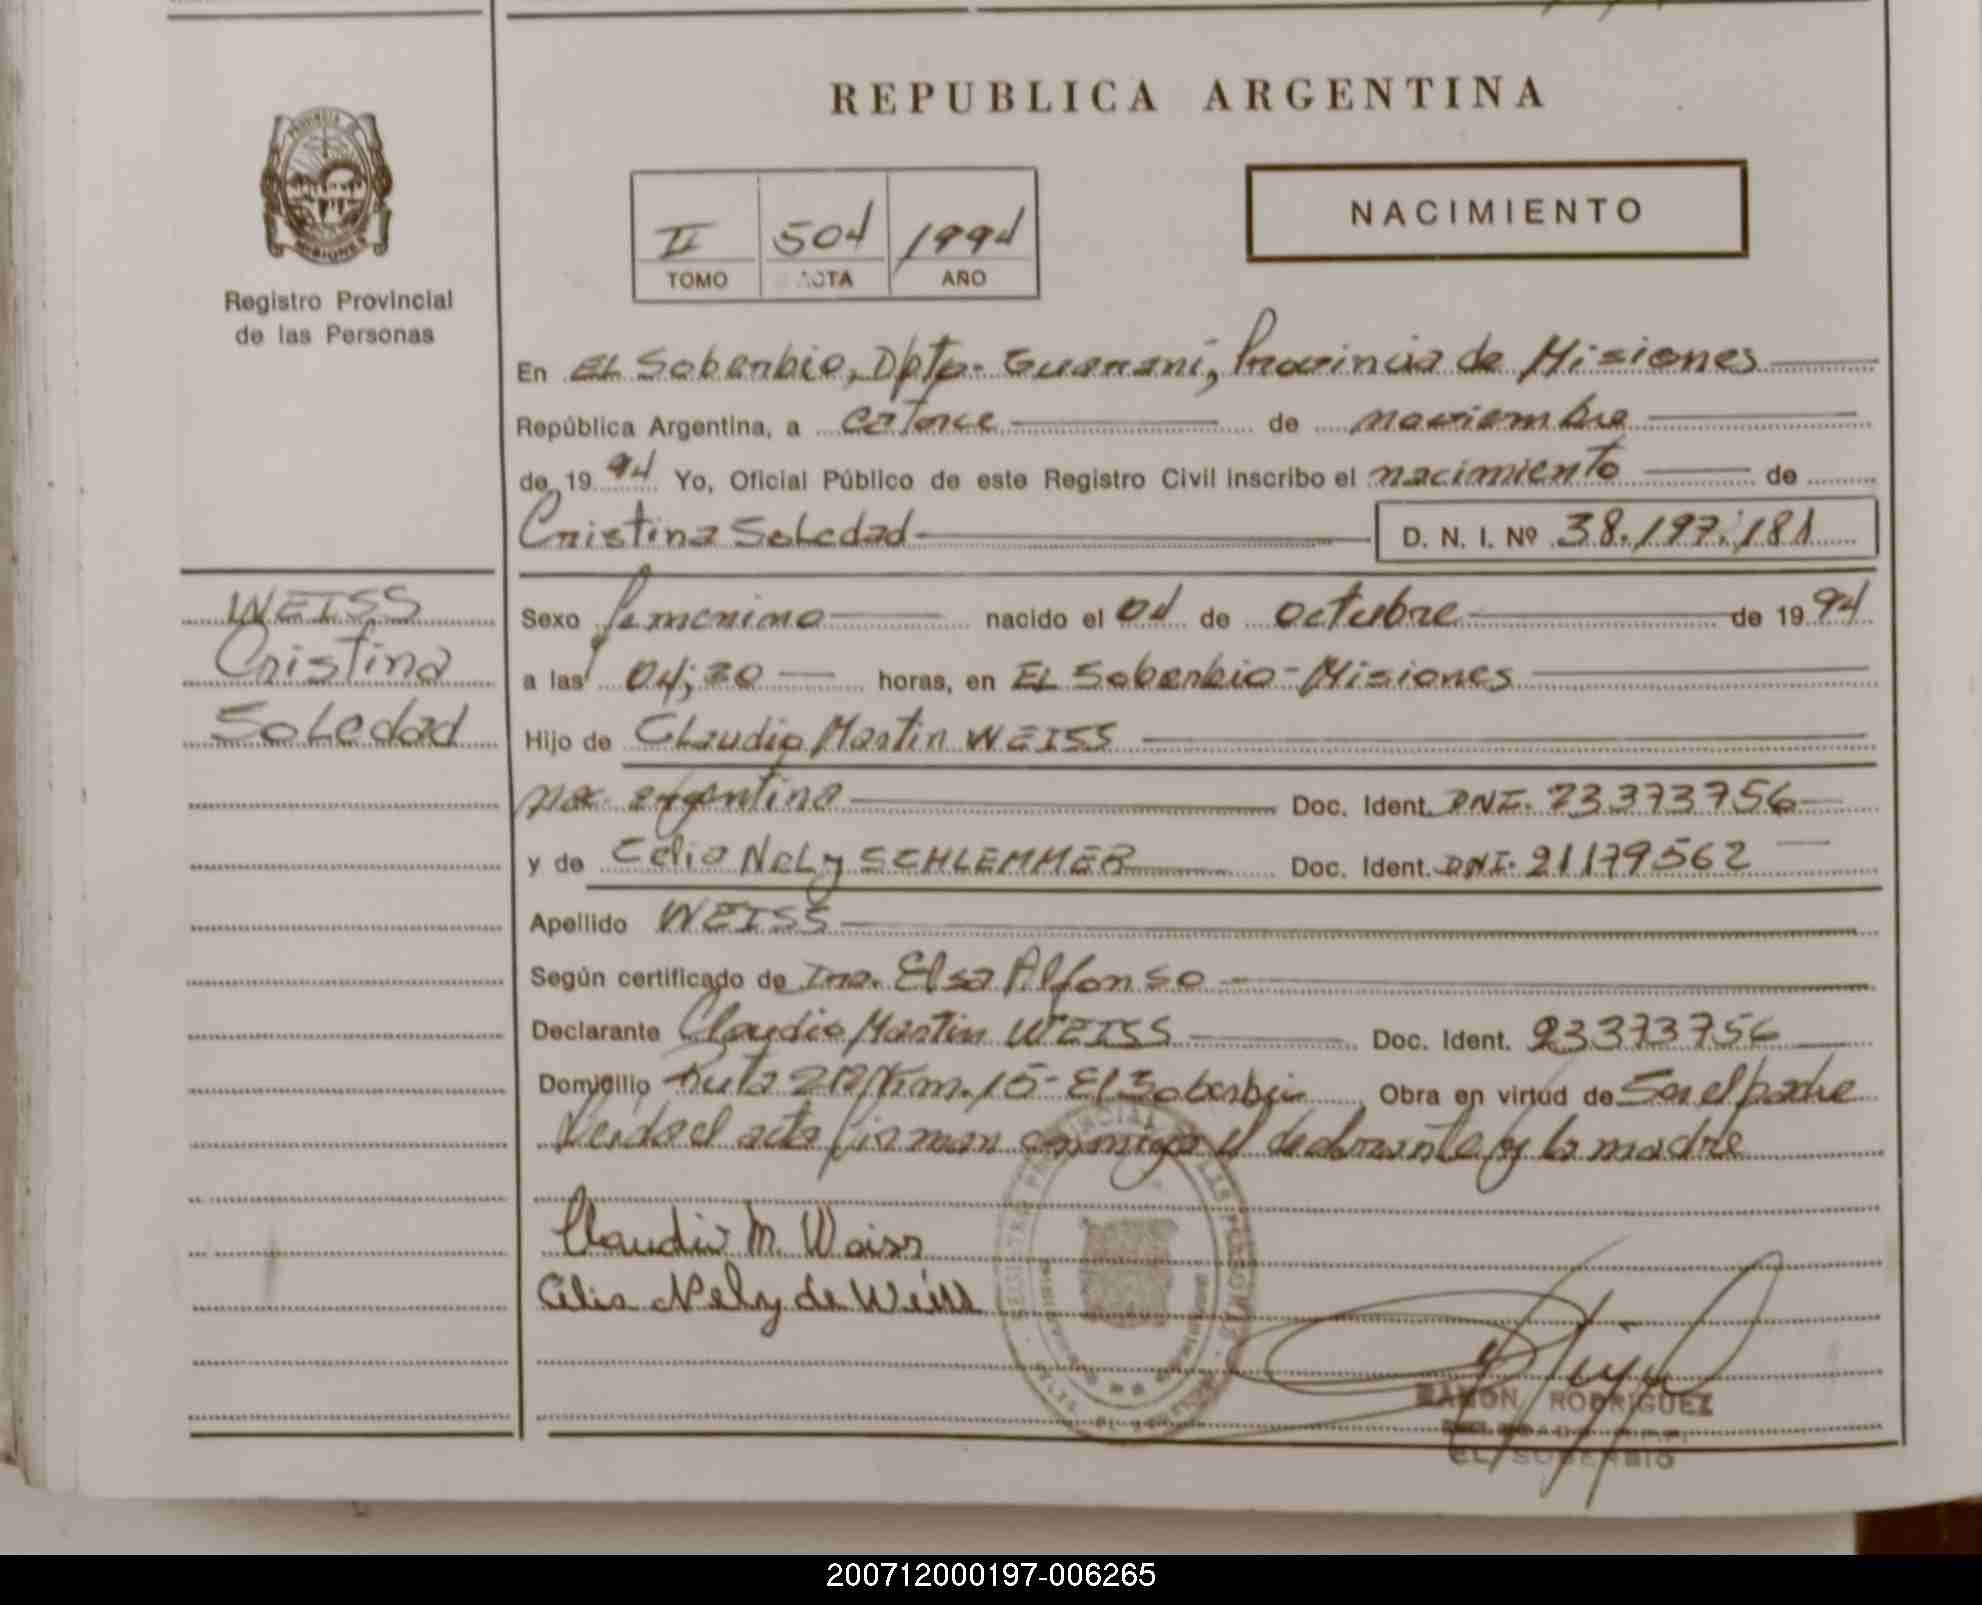 REPUBLICA ARGENTINA
PROVINCIA DE
MISIONES
Registro Provincial
de las Personas
II 504 1994
TOMO ACTA AÑO
NACIMIENTO
En EL Soberbio, Dpto. Guaraní, Provincia de Misiones
República Argentina, a catorce de noviembre
de 19 94 Yo, Oficial Público de este Registro Civil inscribo el nacimiento de
Cristina Soledad D. N. I. Nº 38.197.181
WEISS
Cristina
Soledad
Sexo femenino nacido el 04 de octubre de 19 94
a las 04;30 horas, en EL Soberbio-Misiones
Hijo de Claudio Martin WEISS
nac. argentina Doc. Ident. DNI. 23373756
y de Celia Nely SCHLEMMER Doc. Ident. DNI. 21179562
Apellido WEISS
Según certificado de Elsa Alfonso
Declarante Claudio Martin WEISS Doc. Ident. 23373756
Domicilio Ruta 212 Km. 15- El Soberbio Obra en virtud de Ser el padre
Leida el acta firman conmigo el declarante y la madre
Claudio M. Weiss
Celia Nely de Weiss
RAMON RODRIGUEZ
EL SOBERBIO
200712000197-006265